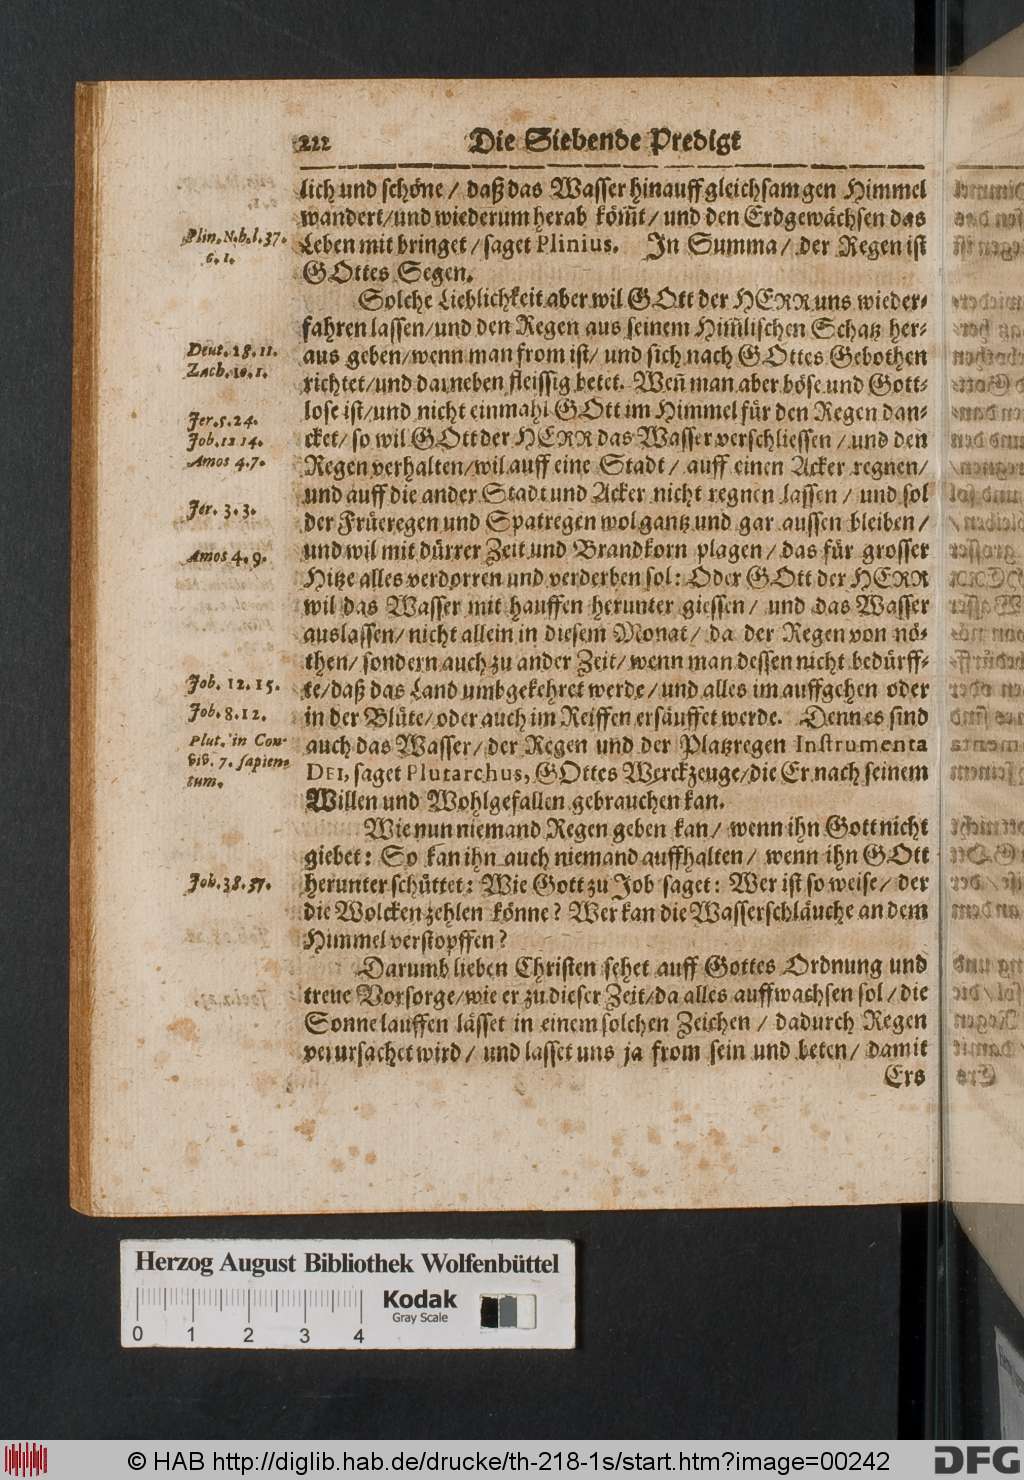 222 Die Siebende Predigt
lich und schöne / daß das Wasser hinauff gleichsam gen Himmel
wandert/und wiederum herab köm̃t / und den Erdgewächsen das
Leben mit bringet / saget Plinius. In Summa / der Regen ist
GOttes Segen.
Plin. N. h. l. 37.
c. 1.
Solche Lieblichkeit aber wil GOtt der HERR uns wieder-
fahren lassen/und den Regen aus seinem Him̃lischen Schatz her-
aus geben/wenn man from ist/ und sich nach GOttes Gebothen
richtet/und darneben fleissig betet. Weñ man aber böse und Gott-
lose ist/und nicht einmahl GOtt im Himmel für den Regen dan-
cket/ so wil GOtt der HERR das Wasser verschliessen / und den
Regen verhalten/wil auff eine Stadt / auff einen Acker regnen/
und auff die ander Stadt und Acker nicht regnen lassen / und sol
der Früeregen und Spatregen wol gantz und gar aussen bleiben /
und wil mit dürrer Zeit und Brandkorn plagen / das für grosser
Hitze alles verdorren und verderben sol: Oder GOtt der HERR
wil das Wasser mit hauffen herunter giessen / und das Wasser
auslassen/ nicht allein in diesem Monat / da der Regen von nö-
then/ sondern auch zu ander Zeit/ wenn man dessen nicht bedürff-
te/daß das Land umbgekehret werde / und alles im auffgehen oder
in der Blüte/ oder auch im Reiffen ersäuffet werde. Denn es sind
auch das Wasser / der Regen und der Platzregen Instrumenta
DEI, saget Plutarchus, GOttes Werckzeuge/die Er nach seinem
Willen und Wohlgefallen gebrauchen kan.
Deut. 28. 11.
Zach. 10. 1.
Jer. 5. 24.
Job. 12 14.
Amos 4. 7.
Jer. 3. 3.
Amos 4. 9.
Job. 12. 15.
Job. 8. 12.
Plut. in Con-
viv. 7. sapien-
tum.
Wie nun niemand Regen geben kan / wenn ihn Gott nicht
giebet: So kan ihn auch niemand auffhalten / wenn ihn GOtt
herunter schüttet: Wie Gott zu Job saget: Wer ist so weise / der
die Wolcken zehlen könne? Wer kan die Wasserschläuche an dem
Himmel verstopffen?
Job. 38. 37.
Darumb lieben Christen sehet auff Gottes Ordnung und
treue Vorsorge/wie er zu dieser Zeit/da alles auffwachsen sol / die
Sonne lauffen lässet in einem solchen Zeichen / dadurch Regen
verursachet wird / und lasset uns ja from sein und beten / damit
Ers
Herzog August Bibliothek Wolfenbüttel
Kodak
Gray Scale
0 1 2 3 4
© HAB http://diglib.hab.de/drucke/th-218-1s/start.htm?image=00242
DFG